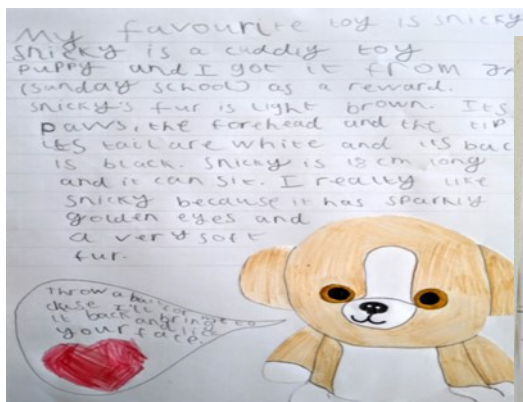 My favourite toy is snicky
snicky is a cuddly toy
puppy and I got it from
(sunday school) as a reward.
snicky's fur is light brown. Its
paws, the forehead and the tip
its tail are white and its bac
is black. Snicky is 18 cm long
and it can sit. I really like
snicky because it has sparkly
golden eyes and
a very soft
fur.
Throw a ball
I'll
it back and
your face.